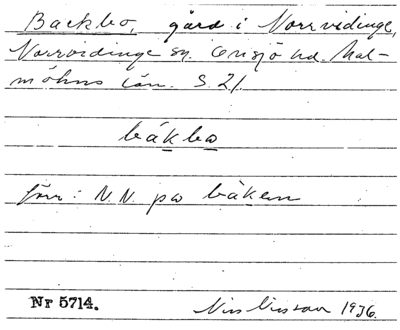 Backbo, gård i Norrvidinge,
Norrvidinge sn. Onsjö hd. Mal-
möhus län. S. 21.
båkbo
förr: N.N. på båken
Nr 5714.
1936.